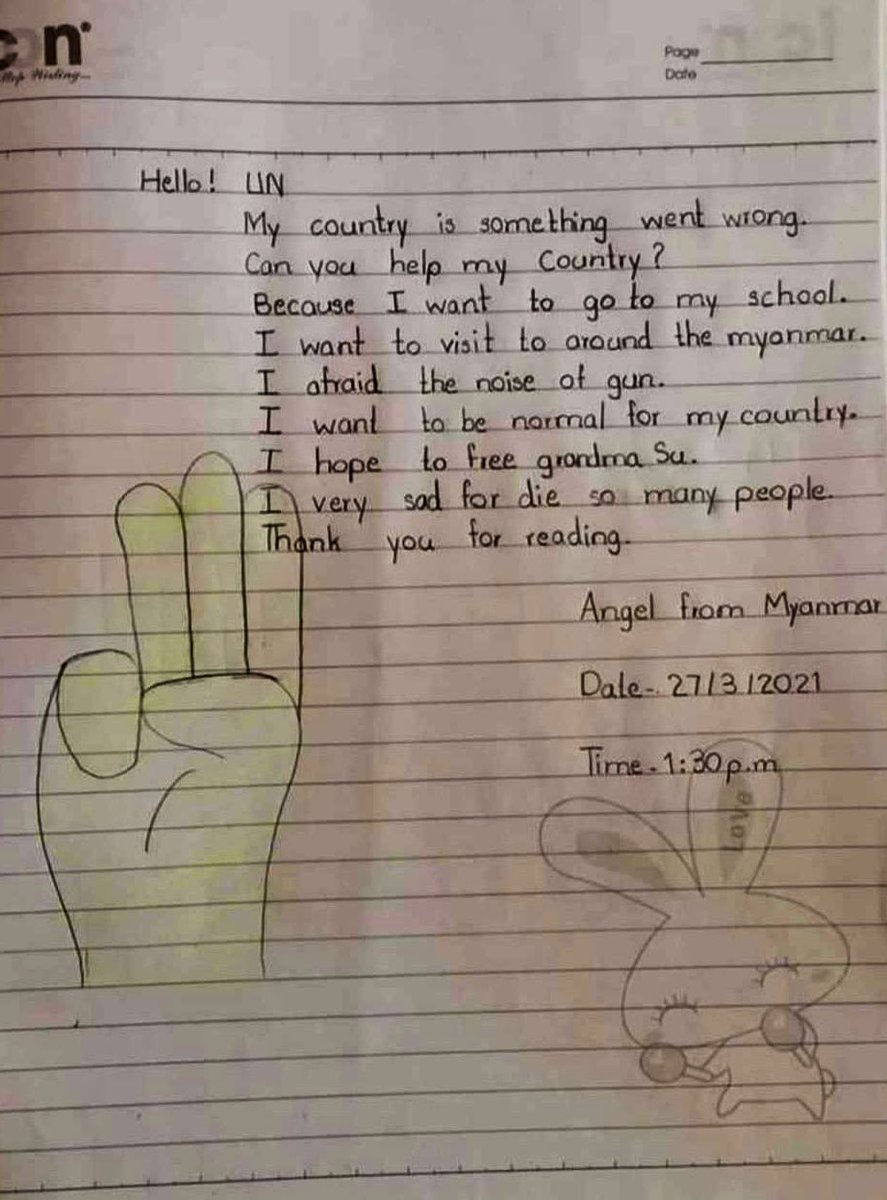 con
Stop Wishing...
Page
Date
Hello! UN
My country is something went wrong.
Can you help my Country?
Because I want to go to my school.
I want to visit to around the myanmar.
I afraid the noise of gun.
I want to be normal for my country.
I hope to free grandma Su.
I very sad for die so many people.
Thank you for reading.
Angel from Myanmar
Date-. 27/3/2021
Time-1:30p.m
Love